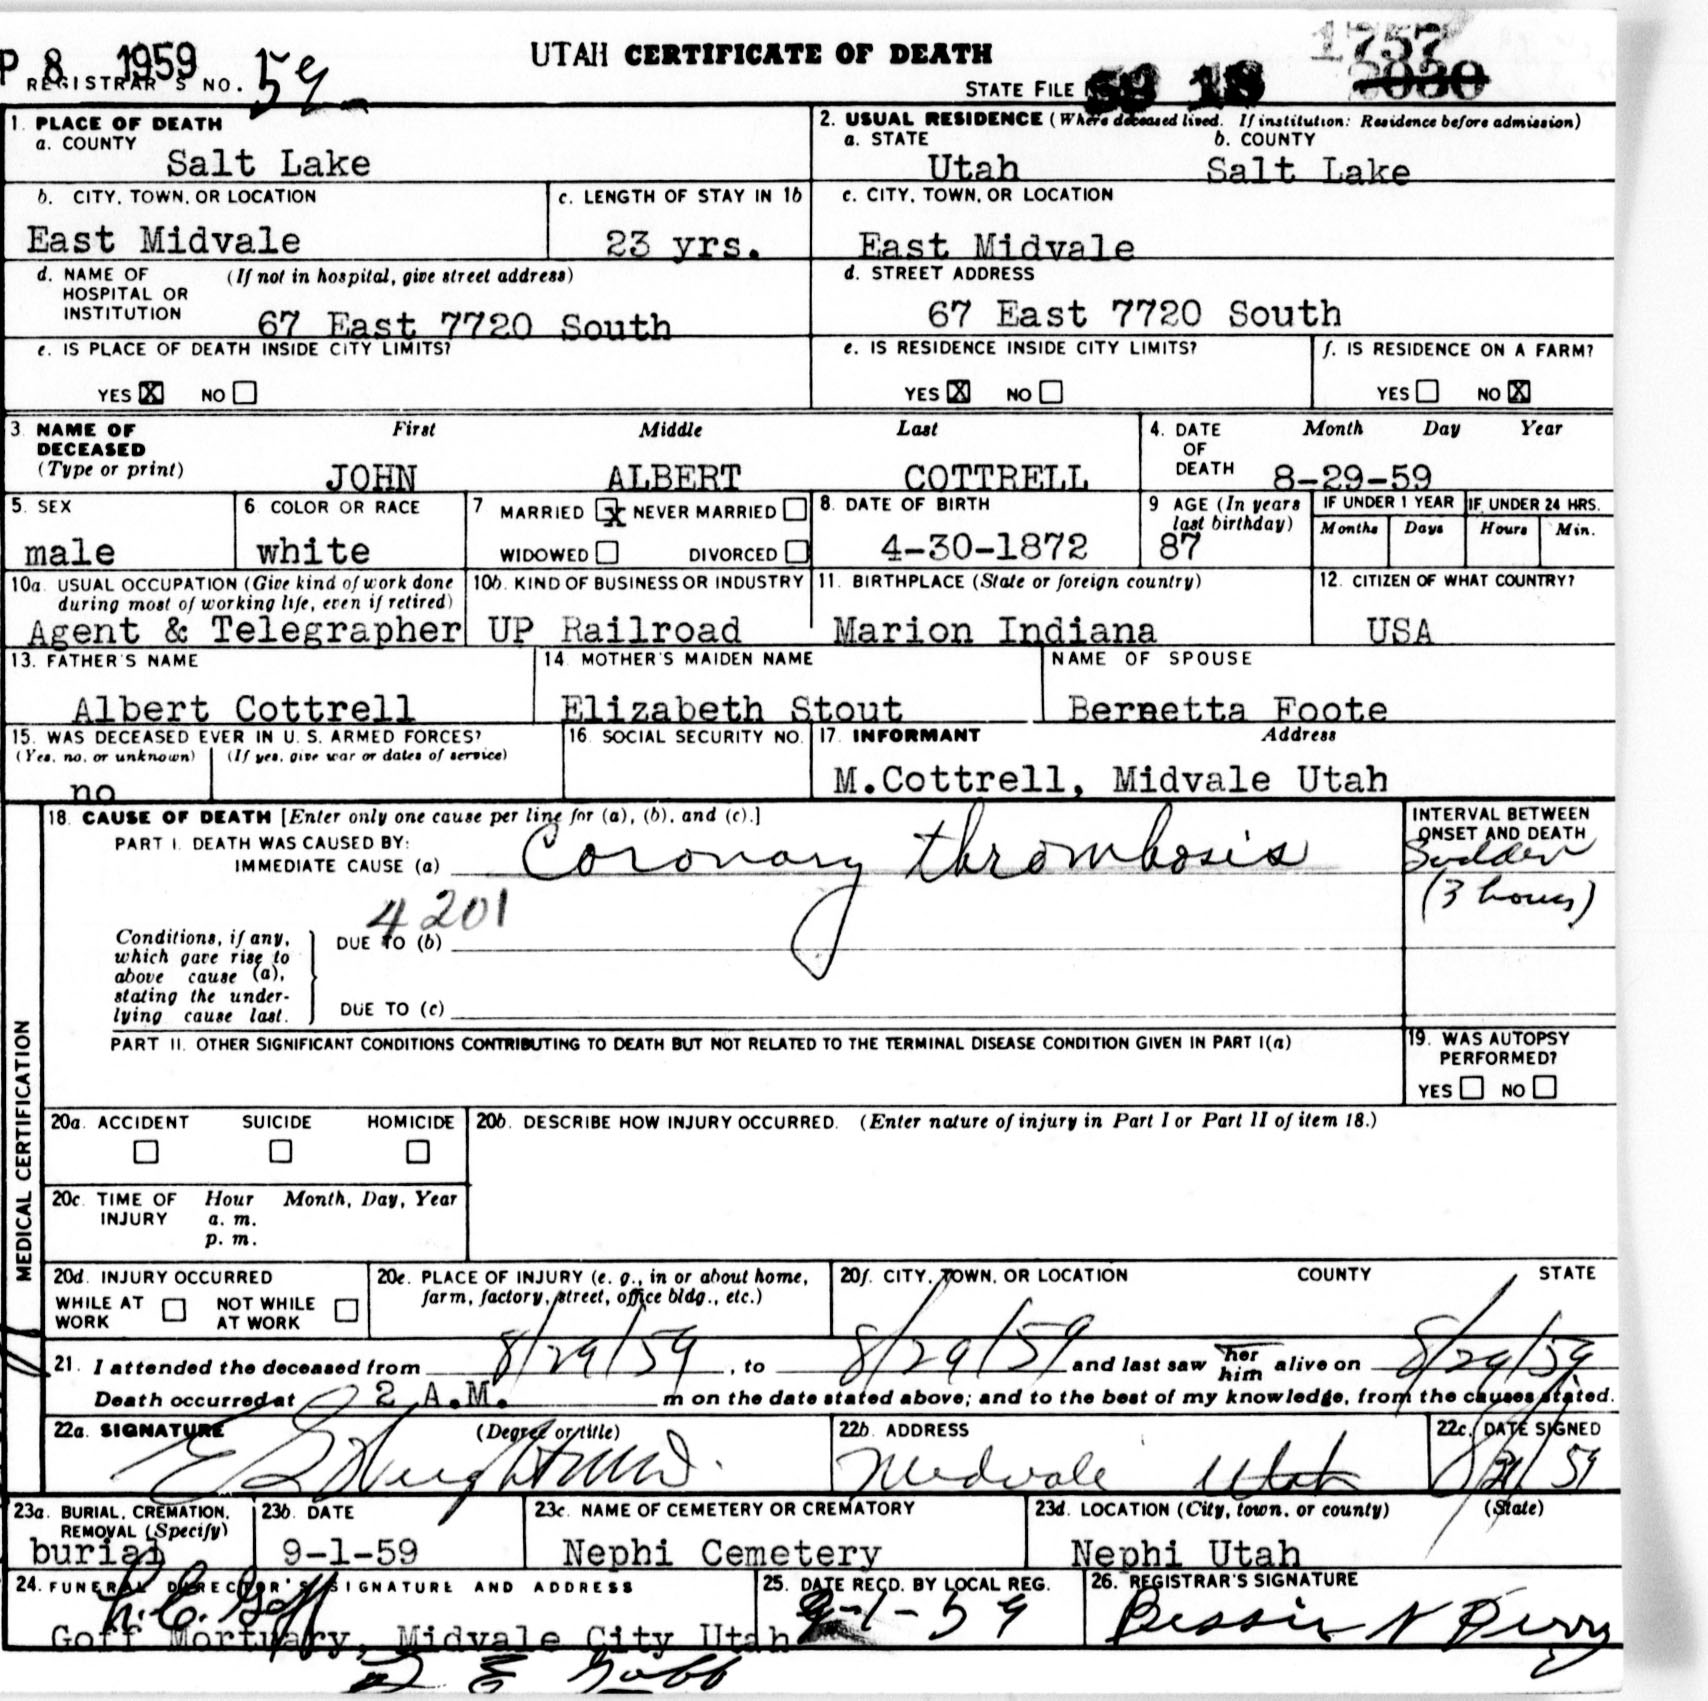 P 8 1959
UTAH CERTIFICATE OF DEATH
1757
REGISTRAR'S NO. 59
STATE FILE 59 18 2030
1. PLACE OF DEATH
a. COUNTY
Salt Lake
2. USUAL RESIDENCE (Where deceased lived. If institution: Residence before admission)
a. STATE b. COUNTY
Utah Salt Lake
b. CITY, TOWN, OR LOCATION
East Midvale
c. LENGTH OF STAY IN 1b
23 yrs.
c. CITY, TOWN, OR LOCATION
East Midvale
d. NAME OF (If not in hospital, give street address)
HOSPITAL OR
INSTITUTION
67 East 7720 South
d. STREET ADDRESS
67 East 7720 South
e. IS PLACE OF DEATH INSIDE CITY LIMITS?
YES X NO
e. IS RESIDENCE INSIDE CITY LIMITS?
YES X NO
f. IS RESIDENCE ON A FARM?
YES NO X
3. NAME OF First Middle Last
DECEASED
(Type or print)
JOHN ALBERT COTTRELL
4. DATE Month Day Year
OF
DEATH 8-29-59
5. SEX
male
6. COLOR OR RACE
white
7 MARRIED X NEVER MARRIED
WIDOWED DIVORCED
8. DATE OF BIRTH
4-30-1872
9 AGE (In years
last birthday)
87
IF UNDER 1 YEAR IF UNDER 24 HRS.
Months Days Hours Min.
10a. USUAL OCCUPATION (Give kind of work done
during most of working life, even if retired)
Agent & Telegrapher
10b. KIND OF BUSINESS OR INDUSTRY
UP Railroad
11. BIRTHPLACE (State or foreign country)
Marion Indiana
12. CITIZEN OF WHAT COUNTRY?
USA
13. FATHER'S NAME
Albert Cottrell
14. MOTHER'S MAIDEN NAME
Elizabeth Stout
NAME OF SPOUSE
Bernetta Foote
15. WAS DECEASED EVER IN U. S. ARMED FORCES?
(Yes, no, or unknown) (If yes, give war or dates of service)
no
16. SOCIAL SECURITY NO.
17. INFORMANT Address
M.Cottrell, Midvale Utah
MEDICAL CERTIFICATION
18. CAUSE OF DEATH [Enter only one cause per line for (a), (b), and (c).]
PART I. DEATH WAS CAUSED BY:
IMMEDIATE CAUSE (a) Coronary thrombosis
4201
Conditions, if any,
which gave rise to
above cause (a),
stating the under-
lying cause last.
DUE TO (b)
DUE TO (c)
INTERVAL BETWEEN
ONSET AND DEATH
Sudden
(3 hours)
PART II. OTHER SIGNIFICANT CONDITIONS CONTRIBUTING TO DEATH BUT NOT RELATED TO THE TERMINAL DISEASE CONDITION GIVEN IN PART I(a)
19. WAS AUTOPSY
PERFORMED?
YES NO
20a. ACCIDENT SUICIDE HOMICIDE
20b. DESCRIBE HOW INJURY OCCURRED. (Enter nature of injury in Part I or Part II of item 18.)
20c. TIME OF Hour Month, Day, Year
INJURY a. m.
p. m.
20d. INJURY OCCURRED
WHILE AT NOT WHILE
WORK AT WORK
20e. PLACE OF INJURY (e. g., in or about home,
farm, factory, street, office bldg., etc.)
20f. CITY, TOWN, OR LOCATION COUNTY STATE
21. I attended the deceased from 8/29/59, to 8/29/59 and last saw her him alive on 8/29/59
Death occurred at 2 A.M. m on the date stated above; and to the best of my knowledge, from the causes stated.
22a. SIGNATURE (Degree or title)
22b. ADDRESS
Midvale Utah
22c. DATE SIGNED
8/31/59
23a. BURIAL, CREMATION,
REMOVAL (Specify)
burial
23b. DATE
9-1-59
23c. NAME OF CEMETERY OR CREMATORY
Nephi Cemetery
23d. LOCATION (City, town, or county) (State)
Nephi Utah
24. FUNERAL DIRECTOR'S SIGNATURE AND ADDRESS
Goff Mortuary, Midvale City Utah
25. DATE RECD. BY LOCAL REG.
9-1-59
26. REGISTRAR'S SIGNATURE
Bessie N Perry